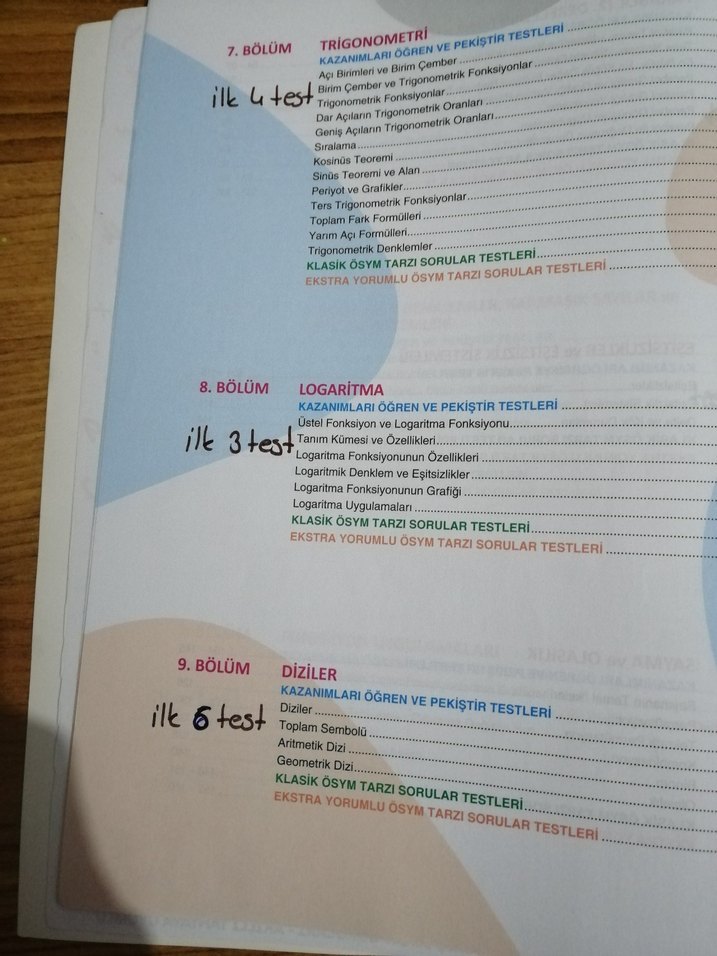 7. BÖLÜM TRİGONOMETRİ
KAZANIMLARI ÖĞREN VE PEKİŞTİR TESTLERİ
Açı Birimleri ve Birim Çember
ilk 4 test
Birim Çember ve Trigonometrik Fonksiyonlar
Trigonometrik Fonksiyonlar
Dar Açıların Trigonometrik Oranları
Geniş Açıların Trigonometrik Oranları
Sıralama
Kosinüs Teoremi
Sinüs Teoremi ve Alan
Periyot ve Grafikler
Ters Trigonometrik Fonksiyonlar
Toplam Fark Formülleri
Yarım Açı Formülleri
Trigonometrik Denklemler
KLASİK ÖSYM TARZI SORULAR TESTLERİ
EKSTRA YORUMLU ÖSYM TARZI SORULAR TESTLERİ
8. BÖLÜM LOGARİTMA
KAZANIMLARI ÖĞREN VE PEKİŞTİR TESTLERİ
Üstel Fonksiyon ve Logaritma Fonksiyonu
ilk 3 test
Tanım Kümesi ve Özellikleri
Logaritma Fonksiyonunun Özellikleri
Logaritmik Denklem ve Eşitsizlikler
Logaritma Fonksiyonunun Grafiği
Logaritma Uygulamaları
KLASİK ÖSYM TARZI SORULAR TESTLERİ
EKSTRA YORUMLU ÖSYM TARZI SORULAR TESTLERİ
9. BÖLÜM DİZİLER
KAZANIMLARI ÖĞREN VE PEKİŞTİR TESTLERİ
ilk 6 test
Diziler
Toplam Sembolü
Aritmetik Dizi
Geometrik Dizi
KLASİK ÖSYM TARZI SORULAR TESTLERİ
EKSTRA YORUMLU ÖSYM TARZI SORULAR TESTLERİ